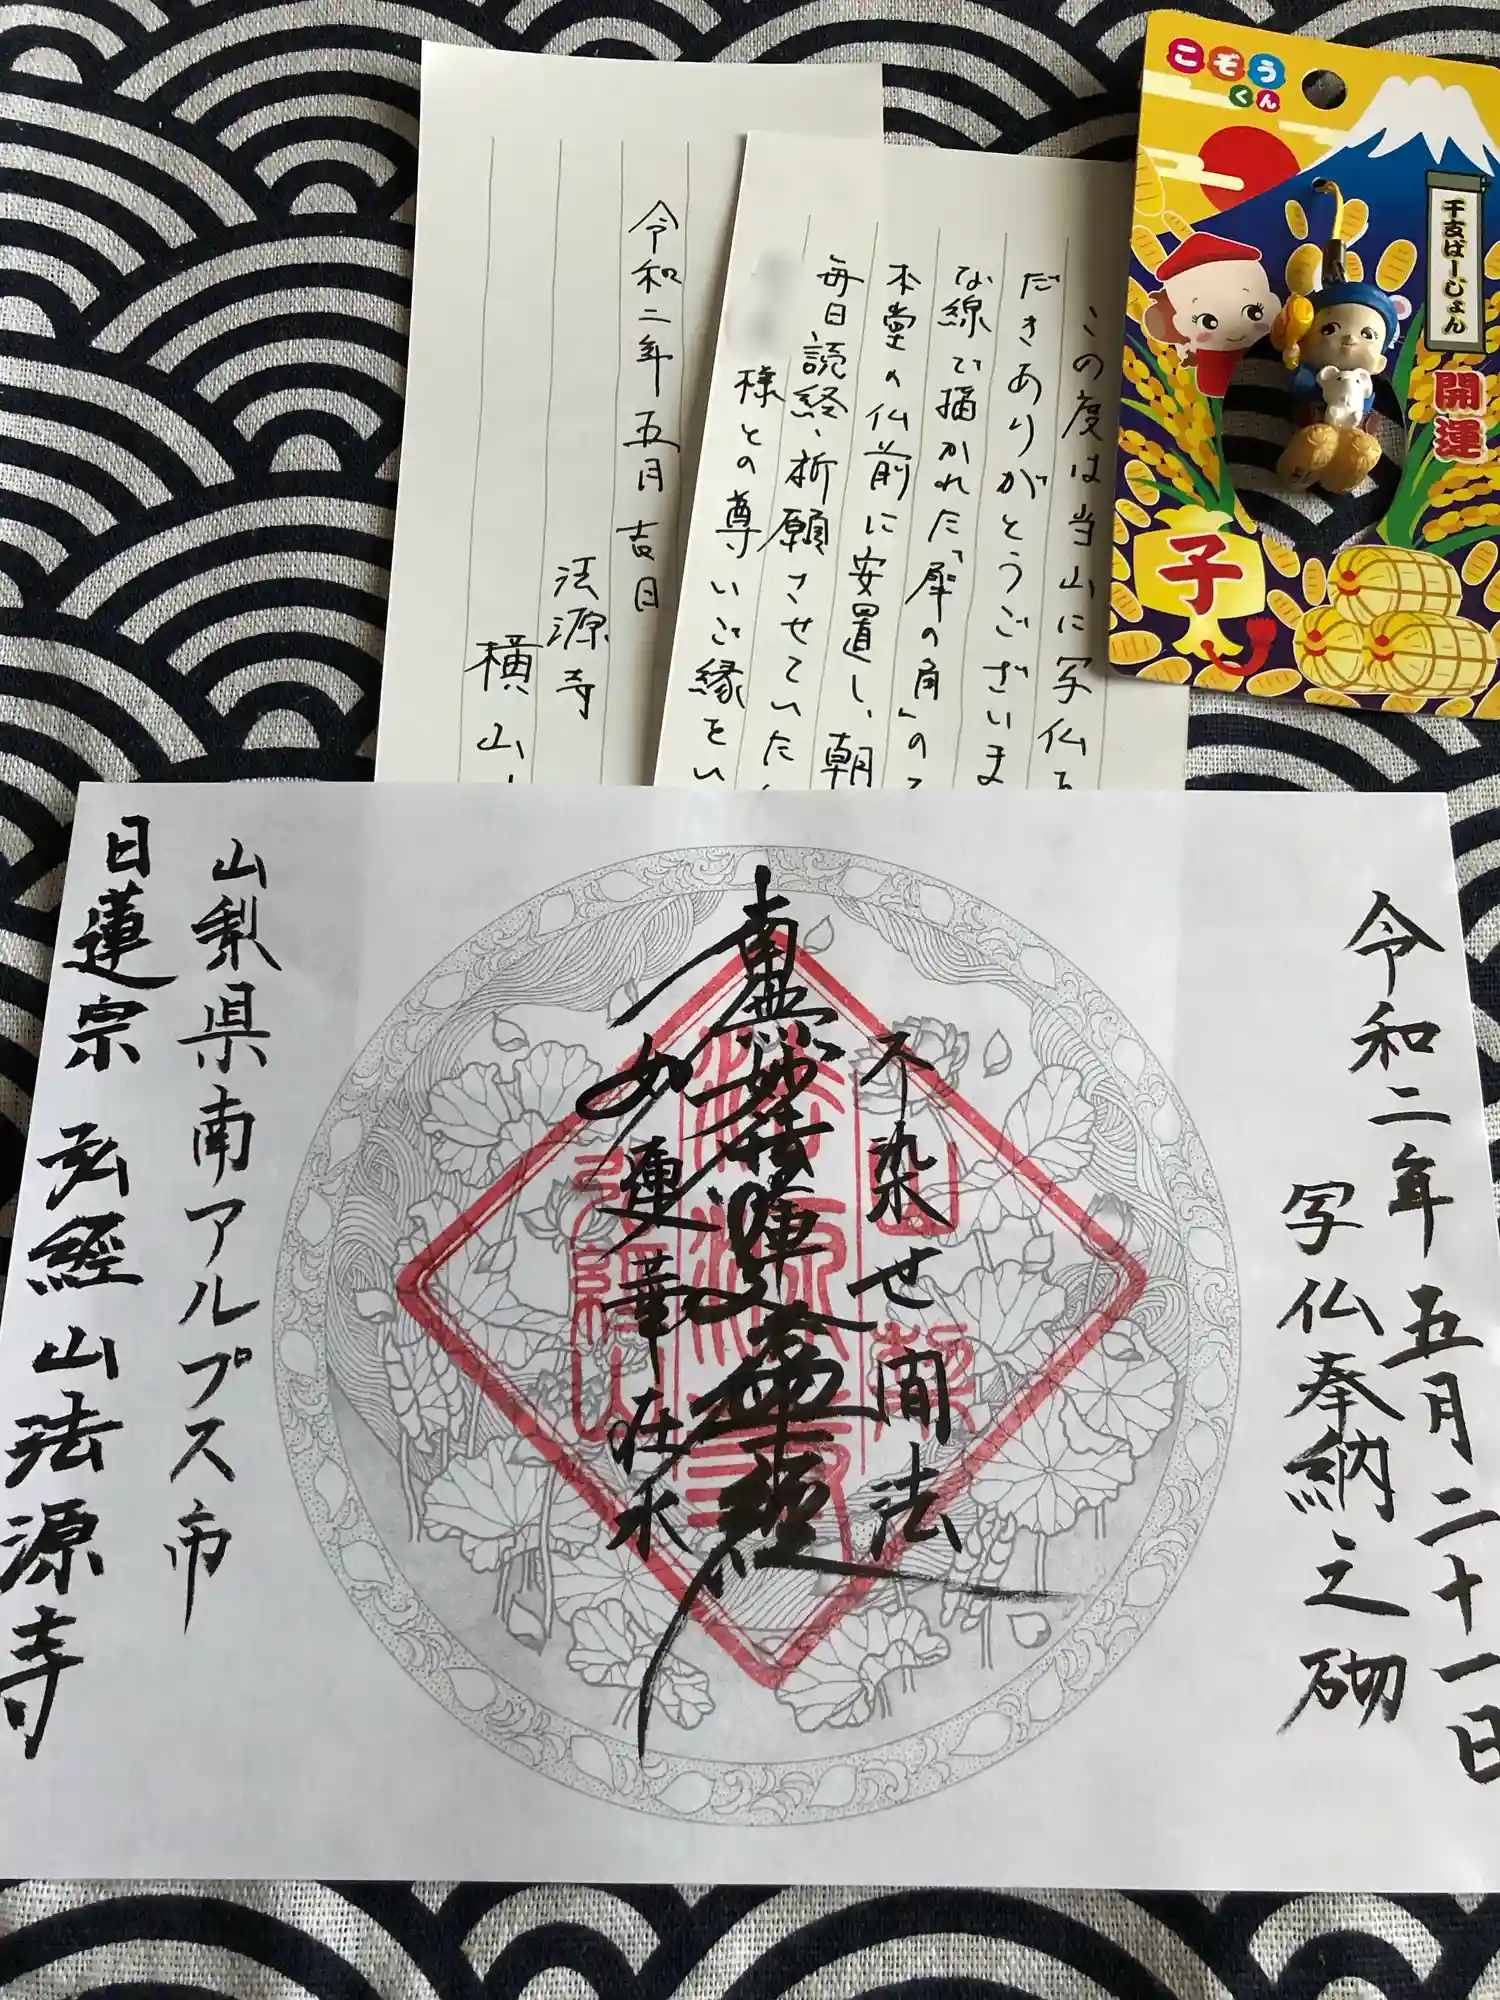 令和二年五月吉日
法源寺
横山
この度は当山に写仏
だきありがとうございま
な線で描かれた「犀の角」の
本堂の仏前に安置し、朝
毎日読経、祈願させていた
様との尊いご縁を
こぞう
くん
干支ばーじょん
開運
子
令和二年五月二十一日
写仏奉納之砌
不染世間法
南無妙法蓮華経
如蓮華在水
山梨県南アルプス市
日蓮宗 弘經山法源寺